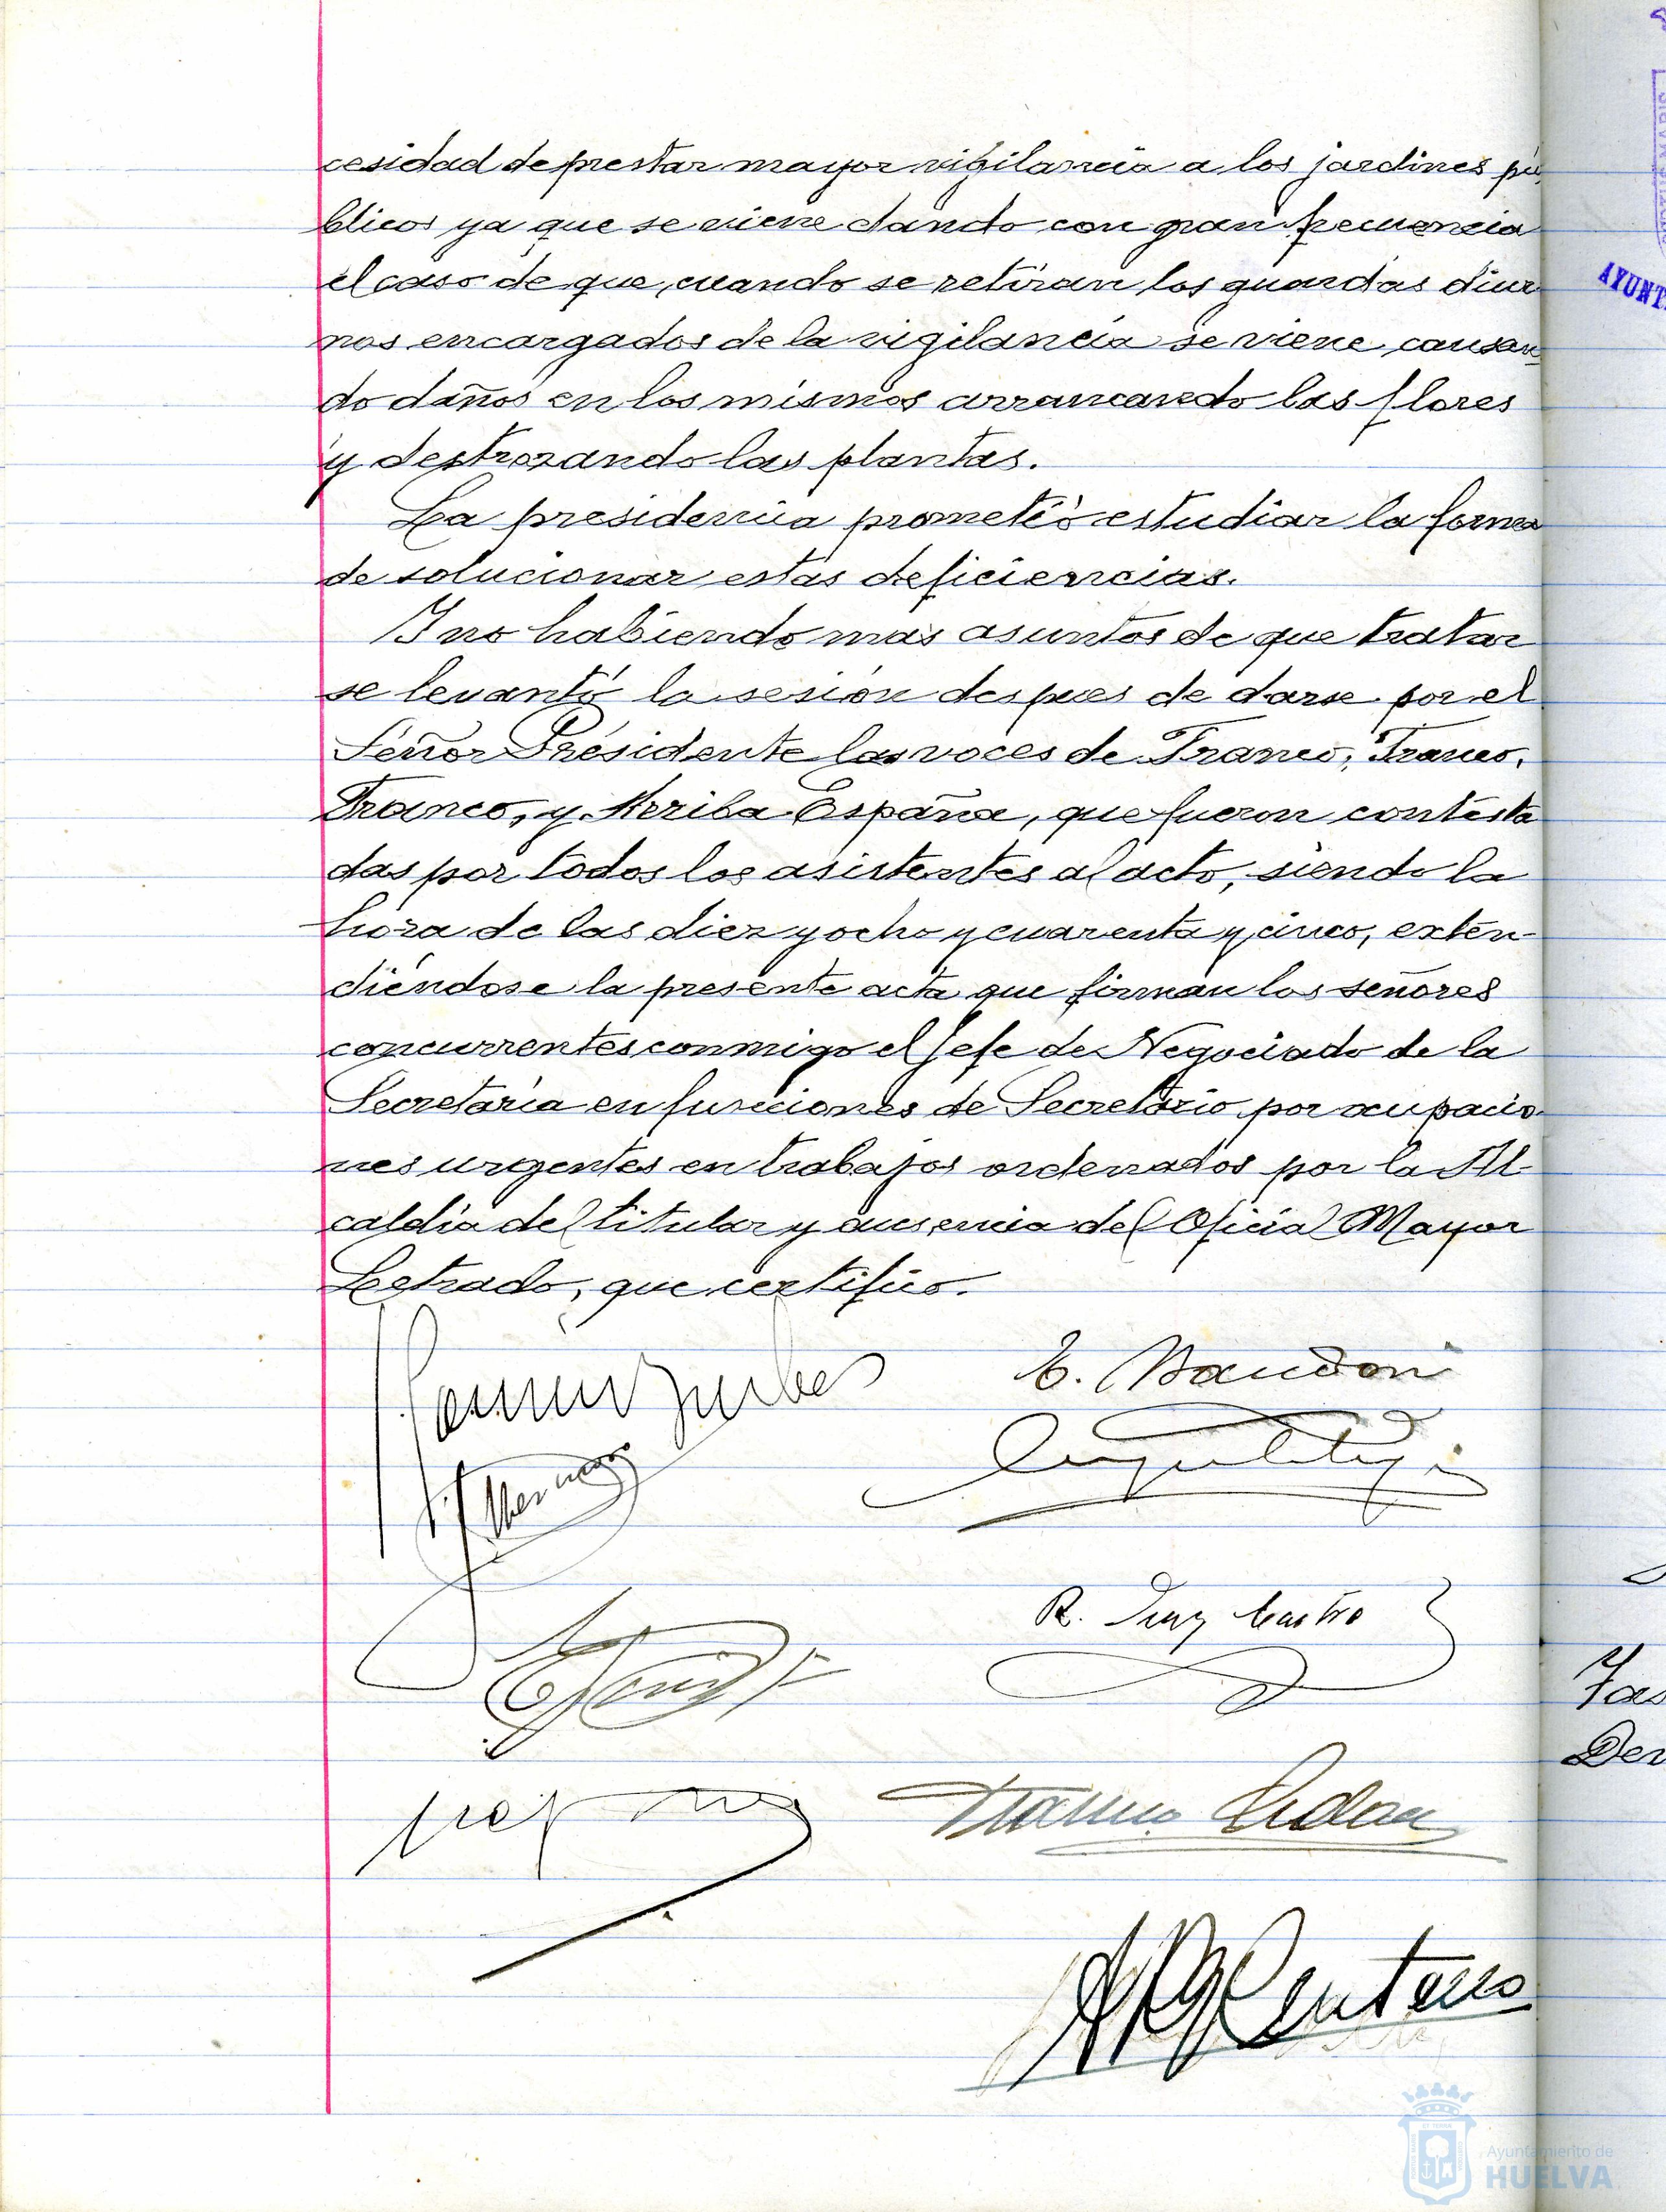 cesidad de prestar mayor vigilancia a los jardines pú
blicos ya que se viene dando con gran frecuencia
el caso de que, cuando se retiran los guardas diur
nos encargados de la vigilancia se viene causan
do daños en los mismos arrancando las flores
y destrozando las plantas.
La presidencia prometió estudiar la forma
de solucionar estas deficiencias.
Y no habiendo mas asuntos de que tratar
se levantó la sesión despues de darse por el
Señor Presidente las voces de Franco, Franco,
Franco, y Arriba España, que fueron contesta
das por todos los asistentes al acto, siendo la
hora de las diez y ocho y cuarenta y cinco, exten-
diéndose la presente acta que firman los señores
concurrentes conmigo el Jefe de Negociado de la
Secretaría en funciones de Secretario por ocupacio-
nes urgentes en trabajos ordenados por la Al-
caldía del titular y ausencia del Oficial Mayor
Letrado, que certifico.
R. Díaz Castro
Centeno
AYUNT
Ayuntamiento de
HUELVA